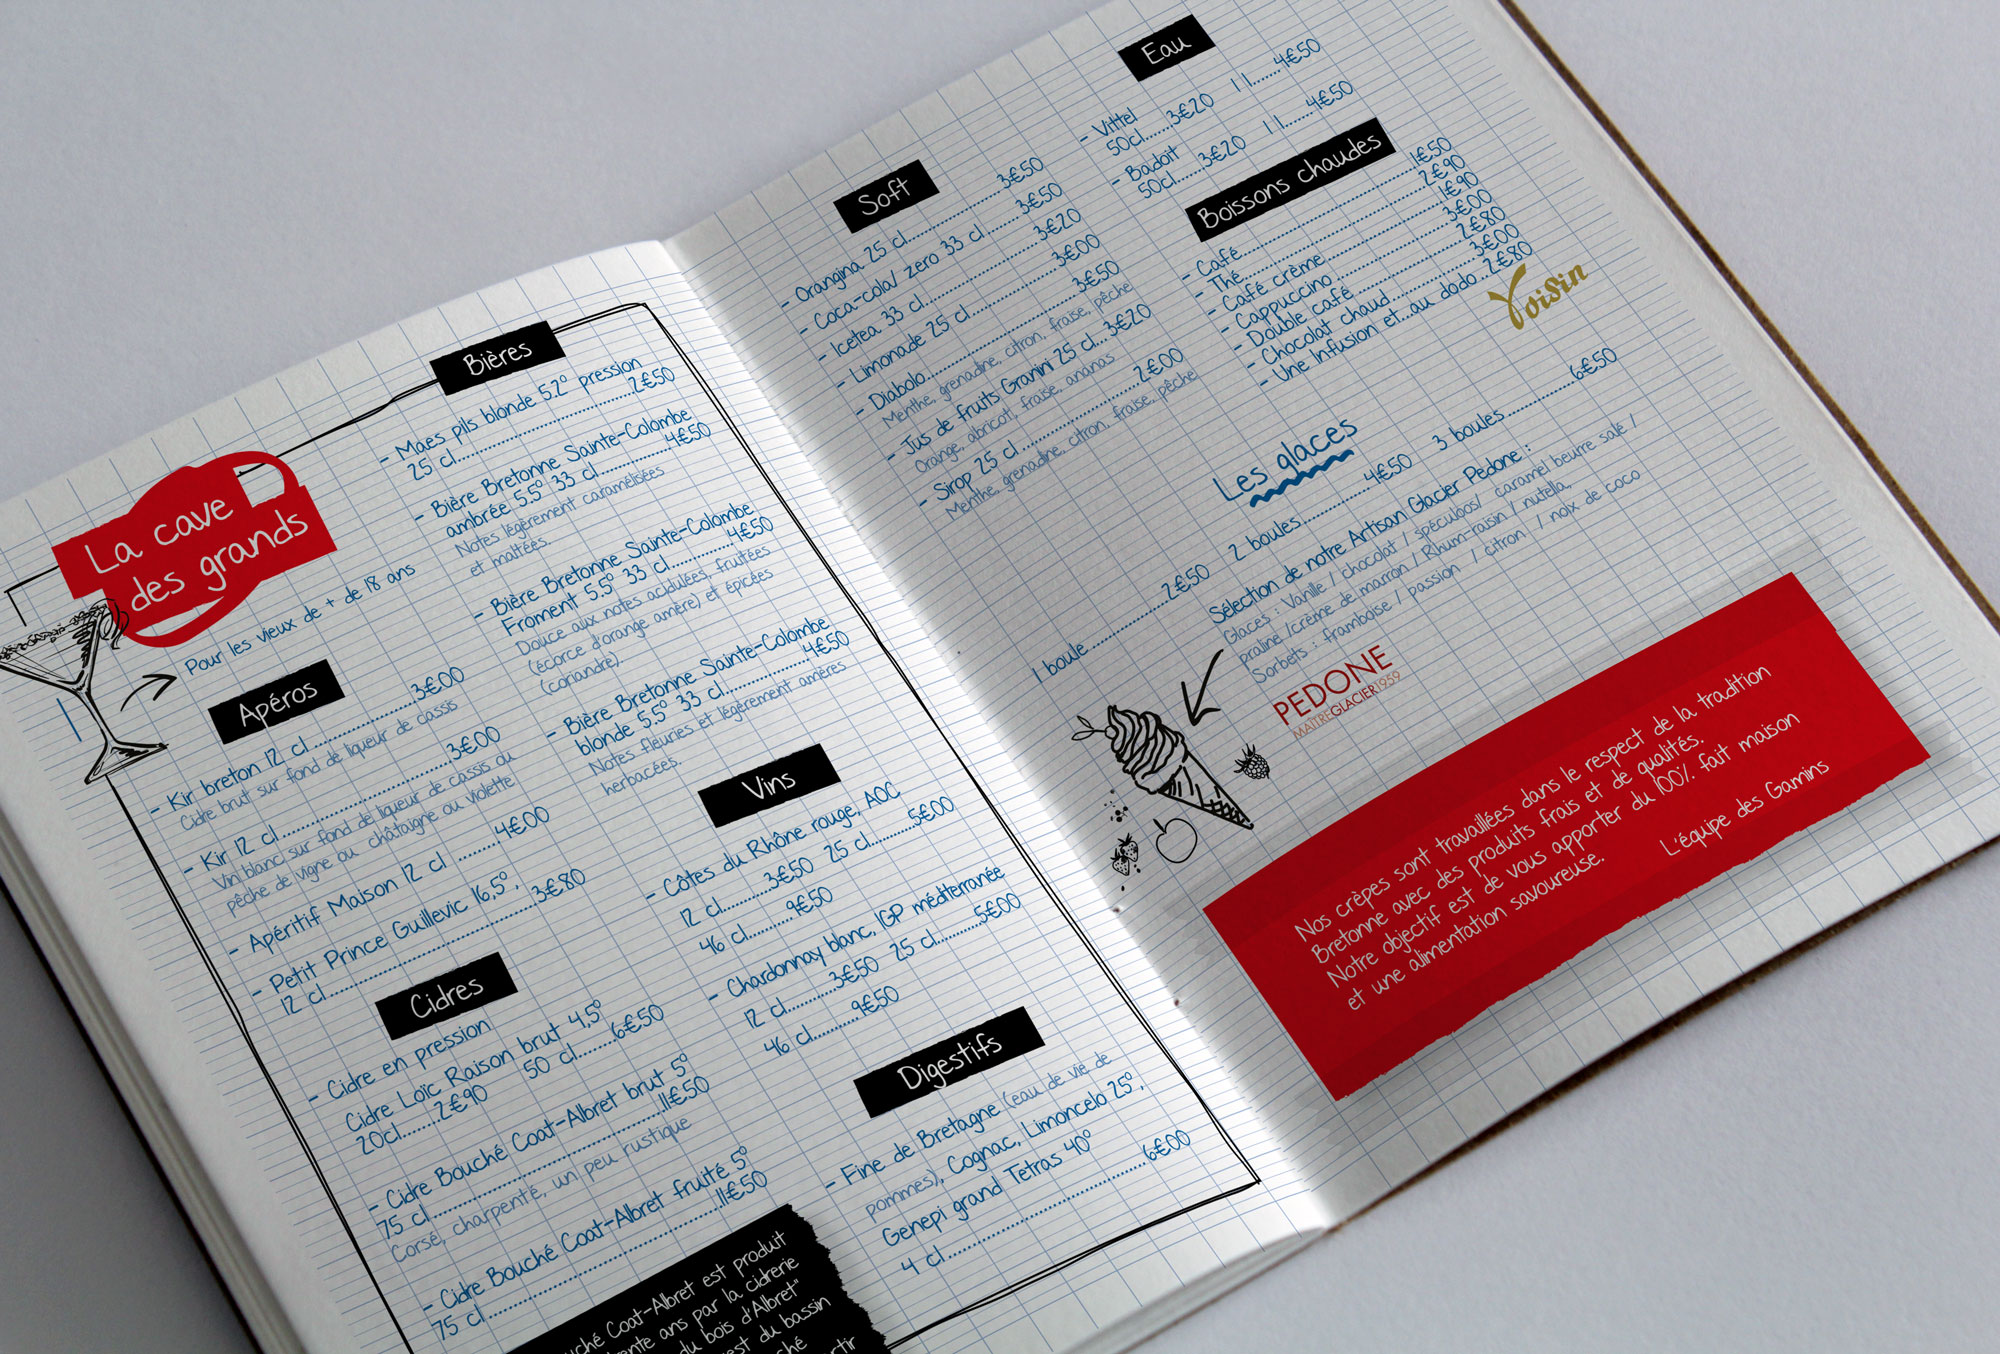 La cave
des grands
Pour les vieux de + de 18 ans
Apéros
- Kir breton 12 cl ..........3€00
Cidre brut sur fond de liqueur de cassis
- Kir 12 cl ..........3€00
Vin blanc sur fond de liqueur de cassis ou
pêche de vigne ou châtaigne ou violette
- Apéritif Maison 12 cl .......4€00
- Petit Prince Guillevic 16,5°,
12 cl..........3€80
Cidres
- Cidre en pression
Cidre Loïc Raison brut 4,5°
20cl.......2€90 50 cl.......6€50
- Cidre Bouché Coat-Albret brut 5°
75 cl..........11€50
Corsé, charpenté, un peu rustique
- Cidre Bouché Coat-Albret fruité 5°
75 cl..........11€50
uché Coat-Albret est produit
ente ans par la cidrerie
du bois d'Albret"
est du bassin
ché
artir
Bières
- Maes pils blonde 5.2° pression
25 cl..........2€50
- Bière Bretonne Sainte-Colombe
ambrée 5.5° 33 cl..........4€50
Notes légèrement caramélisées
et maltées.
- Bière Bretonne Sainte-Colombe
Froment 5.5° 33 cl..........4€50
Douce aux notes acidulées, fruitées
(écorce d'orange amère) et épicées
(coriandre).
- Bière Bretonne Sainte-Colombe
blonde 5.5° 33 cl..........4€50
Notes fleuries et légèrement amères
herbacées.
Vins
- Côtes du Rhône rouge, AOC
12 cl..........3€50 25 cl..........5€00
46 cl..........9€50
- Chardonnay blanc, IGP méditerranée
12 cl..........3€50 25 cl..........5€00
46 cl..........9€50
Digestifs
- Fine de Bretagne (eau de vie de
pommes), Cognac, Limoncelo 25°,
Genepi grand Tetras 40°
4 cl..........6€00
Soft
- Orangina 25 cl..........3€50
- Coca-cola/ zero 33 cl..........3€50
- Icetea 33 cl..........3€20
- Limonade 25 cl..........3€00
- Diabolo..........3€50
Menthe, grenadine, citron, fraise, pêche
- Jus de fruits Granini 25 cl...3€20
Orange, abricot, fraise, ananas
- Sirop 25 cl..........2€00
Menthe, grenadine, citron, fraise, pêche
Eau
- Vittel
50cl......3€20 1 l.......4€50
- Badoit
50cl....3€20 1 l.......4€50
Boissons chaudes
- Café..........1€50
- Thé..........2€90
- Café crème..........1€90
- Cappuccino..........3€00
- Double café..........2€80
- Chocolat chaud..........3€00
- Une Infusion et...au dodo..2€80
Voisin
Les glaces
1 boule..........2€50 2 boules..........4€50 3 boules..........6€50
Sélection de notre Artisan Glacier Pedone :
Glaces : Vanille / chocolat / spéculoos/ caramel beurre salé /
praline /crème de marron / Rhum-raisin / nutella,
Sorbets : framboise / passion / citron / noix de coco
PEDONE
MAÎTREGLACIER1959
Nos crêpes sont travaillées dans le respect de la tradition
Bretonne avec des produits frais et de qualités.
Notre objectif est de vous apporter du 100% fait maison
et une alimentation savoureuse.
L'équipe des Gamins